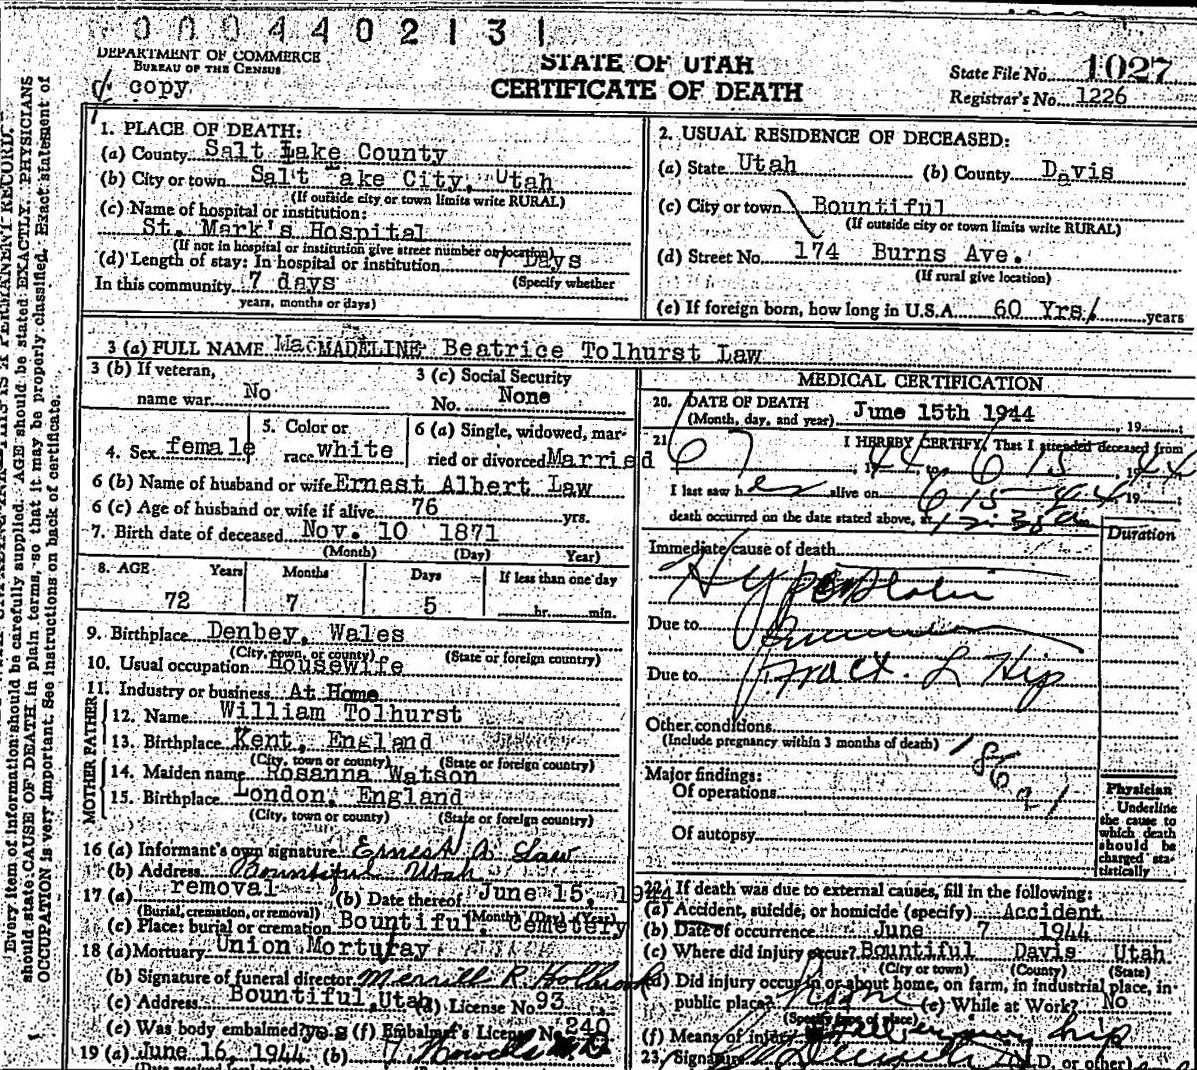 0004402131
DEPARTMENT OF COMMERCE
BUREAU OF THE CENSUS
copy
STATE OF UTAH
CERTIFICATE OF DEATH
State File No. 1027
Registrar's No. 1226
1. PLACE OF DEATH:
(a) County Salt Lake County
(b) City or town Salt ake City, Utah
(If outside city or town limits write RURAL)
(c) Name of hospital or institution:
St. Mark's Hospital
(If not in hospital or institution give street number or location)
(d) Length of stay: In hospital or institution 7 Days
In this community 7 days (Specify whether
years, months or days)
2. USUAL RESIDENCE OF DECEASED:
(a) State Utah (b) County Davis
(c) City or town Bountiful
(If outside city or town limits write RURAL)
(d) Street No. 174 Burns Ave.
(If rural give location)
(e) If foreign born, how long in U.S.A. 60 Yrs. years
3 (a) FULL NAME MADELINE Beatrice Tolhurst Law
3 (b) If veteran,
name war No
3 (c) Social Security
No. None
4. Sex female
5. Color or
race white
6 (a) Single, widowed, mar-
ried or divorced Married
6 (b) Name of husband or wife Ernest Albert Law
6 (c) Age of husband or wife if alive 76 yrs.
7. Birth date of deceased Nov. 10 1871
(Month) (Day) Year)
8. AGE Years Months Days If less than one day
72 7 5 hr. min.
9. Birthplace Denbey, Wales
(City, town, or county) (State or foreign country)
10. Usual occupation Housewife
11. Industry or business At Home
FATHER
12. Name William Tolhurst
13. Birthplace Kent, England
(City, town or county) (State or foreign country)
MOTHER
14. Maiden name Rosanna Watson
15. Birthplace London, England
(City, town or county) (State or foreign country)
16 (a) Informant's own signature Ernest A. Law
(b) Address Bountiful Utah
17 (a) removal (b) Date thereof June 15, 1944
(Burial, cremation, or removal) (Month) (Day) (Year)
(c) Place: burial or cremation Bountiful Cemetery
18 (a) Mortuary Union Morturay
(b) Signature of funeral director Merrill R. Holbrook
(c) Address Bountiful, Utah (d) License No. 93
(e) Was body embalmed? yes (f) Embalmer's License No. 240
19 (a) June 16, 1944 (b)
MEDICAL CERTIFICATION
20. DATE OF DEATH
(Month, day, and year) June 15th 1944, 19
21. I HEREBY CERTIFY, That I attended deceased from
6 7, 1944 to 6 15, 1944
I last saw her alive on 6 15 44 19
death occurred on the date stated above, at 12:30 am
Duration
Immediate cause of death
Hypostatic
Due to Pneumonia
Due to Fract. L Hip
Other conditions
(Include pregnancy within 3 months of death)
186
Major findings:
Of operations
Of autopsy
Physician
Underline
the cause to
which death
should be
charged sta-
tistically
22. If death was due to external causes, fill in the following:
(a) Accident, suicide, or homicide (specify) Accident
(b) Date of occurrence June 7 1944
(c) Where did injury occur? Bountiful Davis Utah
(City or town) (County) (State)
(d) Did injury occur in or about home, on farm, in industrial place, in
public place? Home (e) While at Work? No
(Specify type of place)
(f) Means of injury Fell hip
23. Signature (M.D. or other)
Every item of information should be carefully supplied. AGE should be stated EXACTLY. PHYSICIANS
should state CAUSE OF DEATH in plain terms, so that it may be properly classified. Exact statement of
OCCUPATION is very important. See instructions on back of certificate.